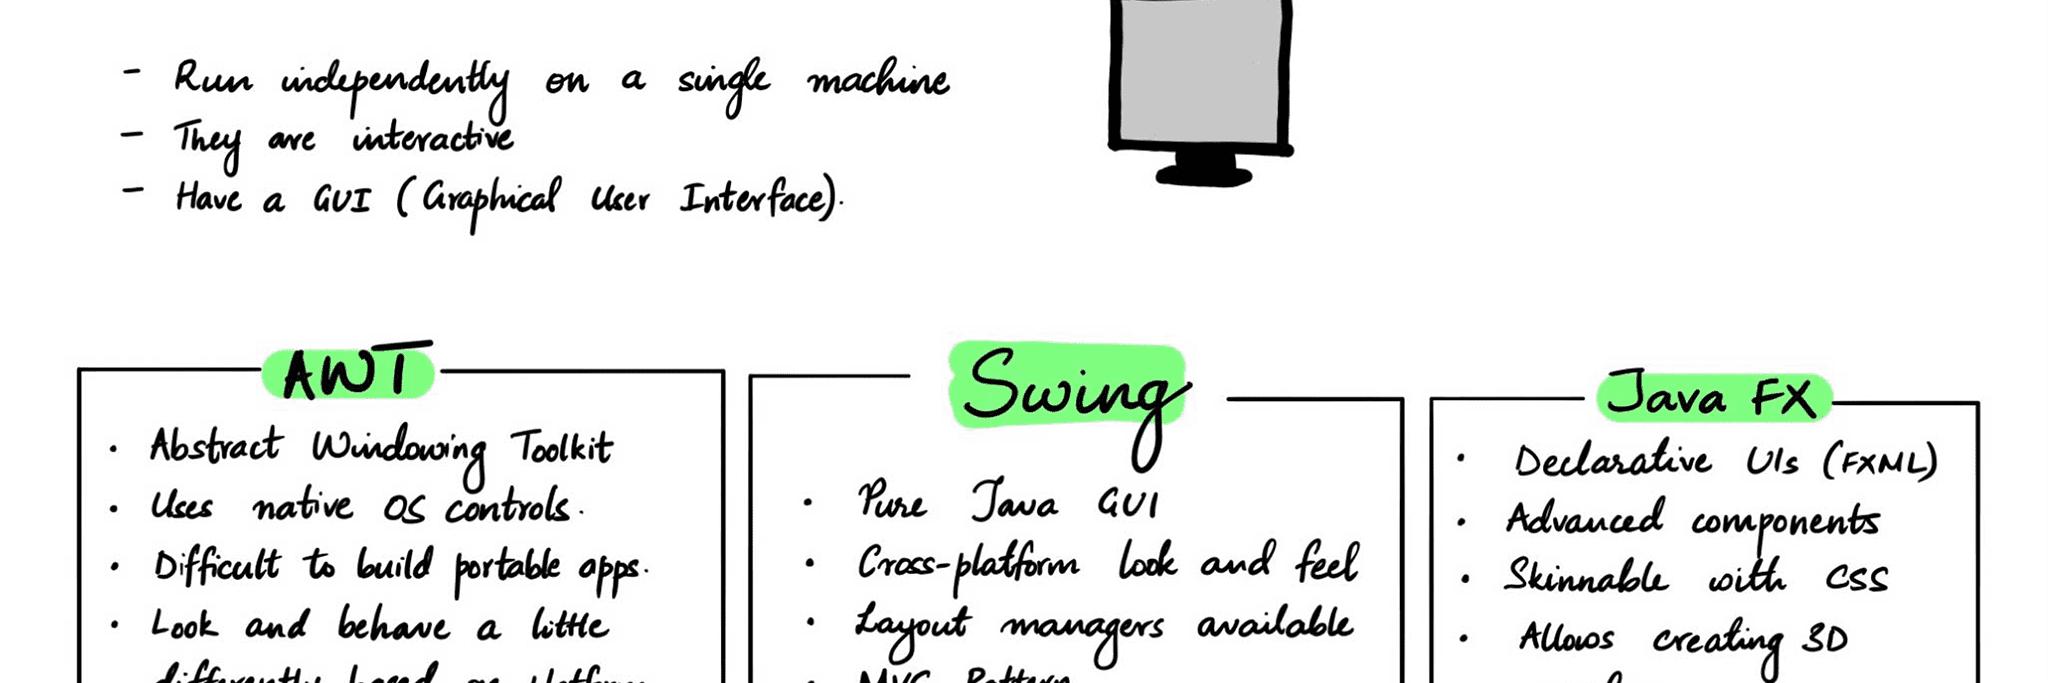 - Run independently on a single machine
- They are interactive
- Have a GUI (Graphical User Interface).
AWT
• Abstract Windowing Toolkit
• Uses native OS controls.
• Difficult to build portable apps.
• Look and behave a little
differently based on platform
Swing
• Pure Java GUI
• Cross-platform look and feel
• Layout managers available
• MVC Pattern
Java FX
• Declarative UIs (FXML)
• Advanced components
• Skinnable with CSS
• Allows creating 3D